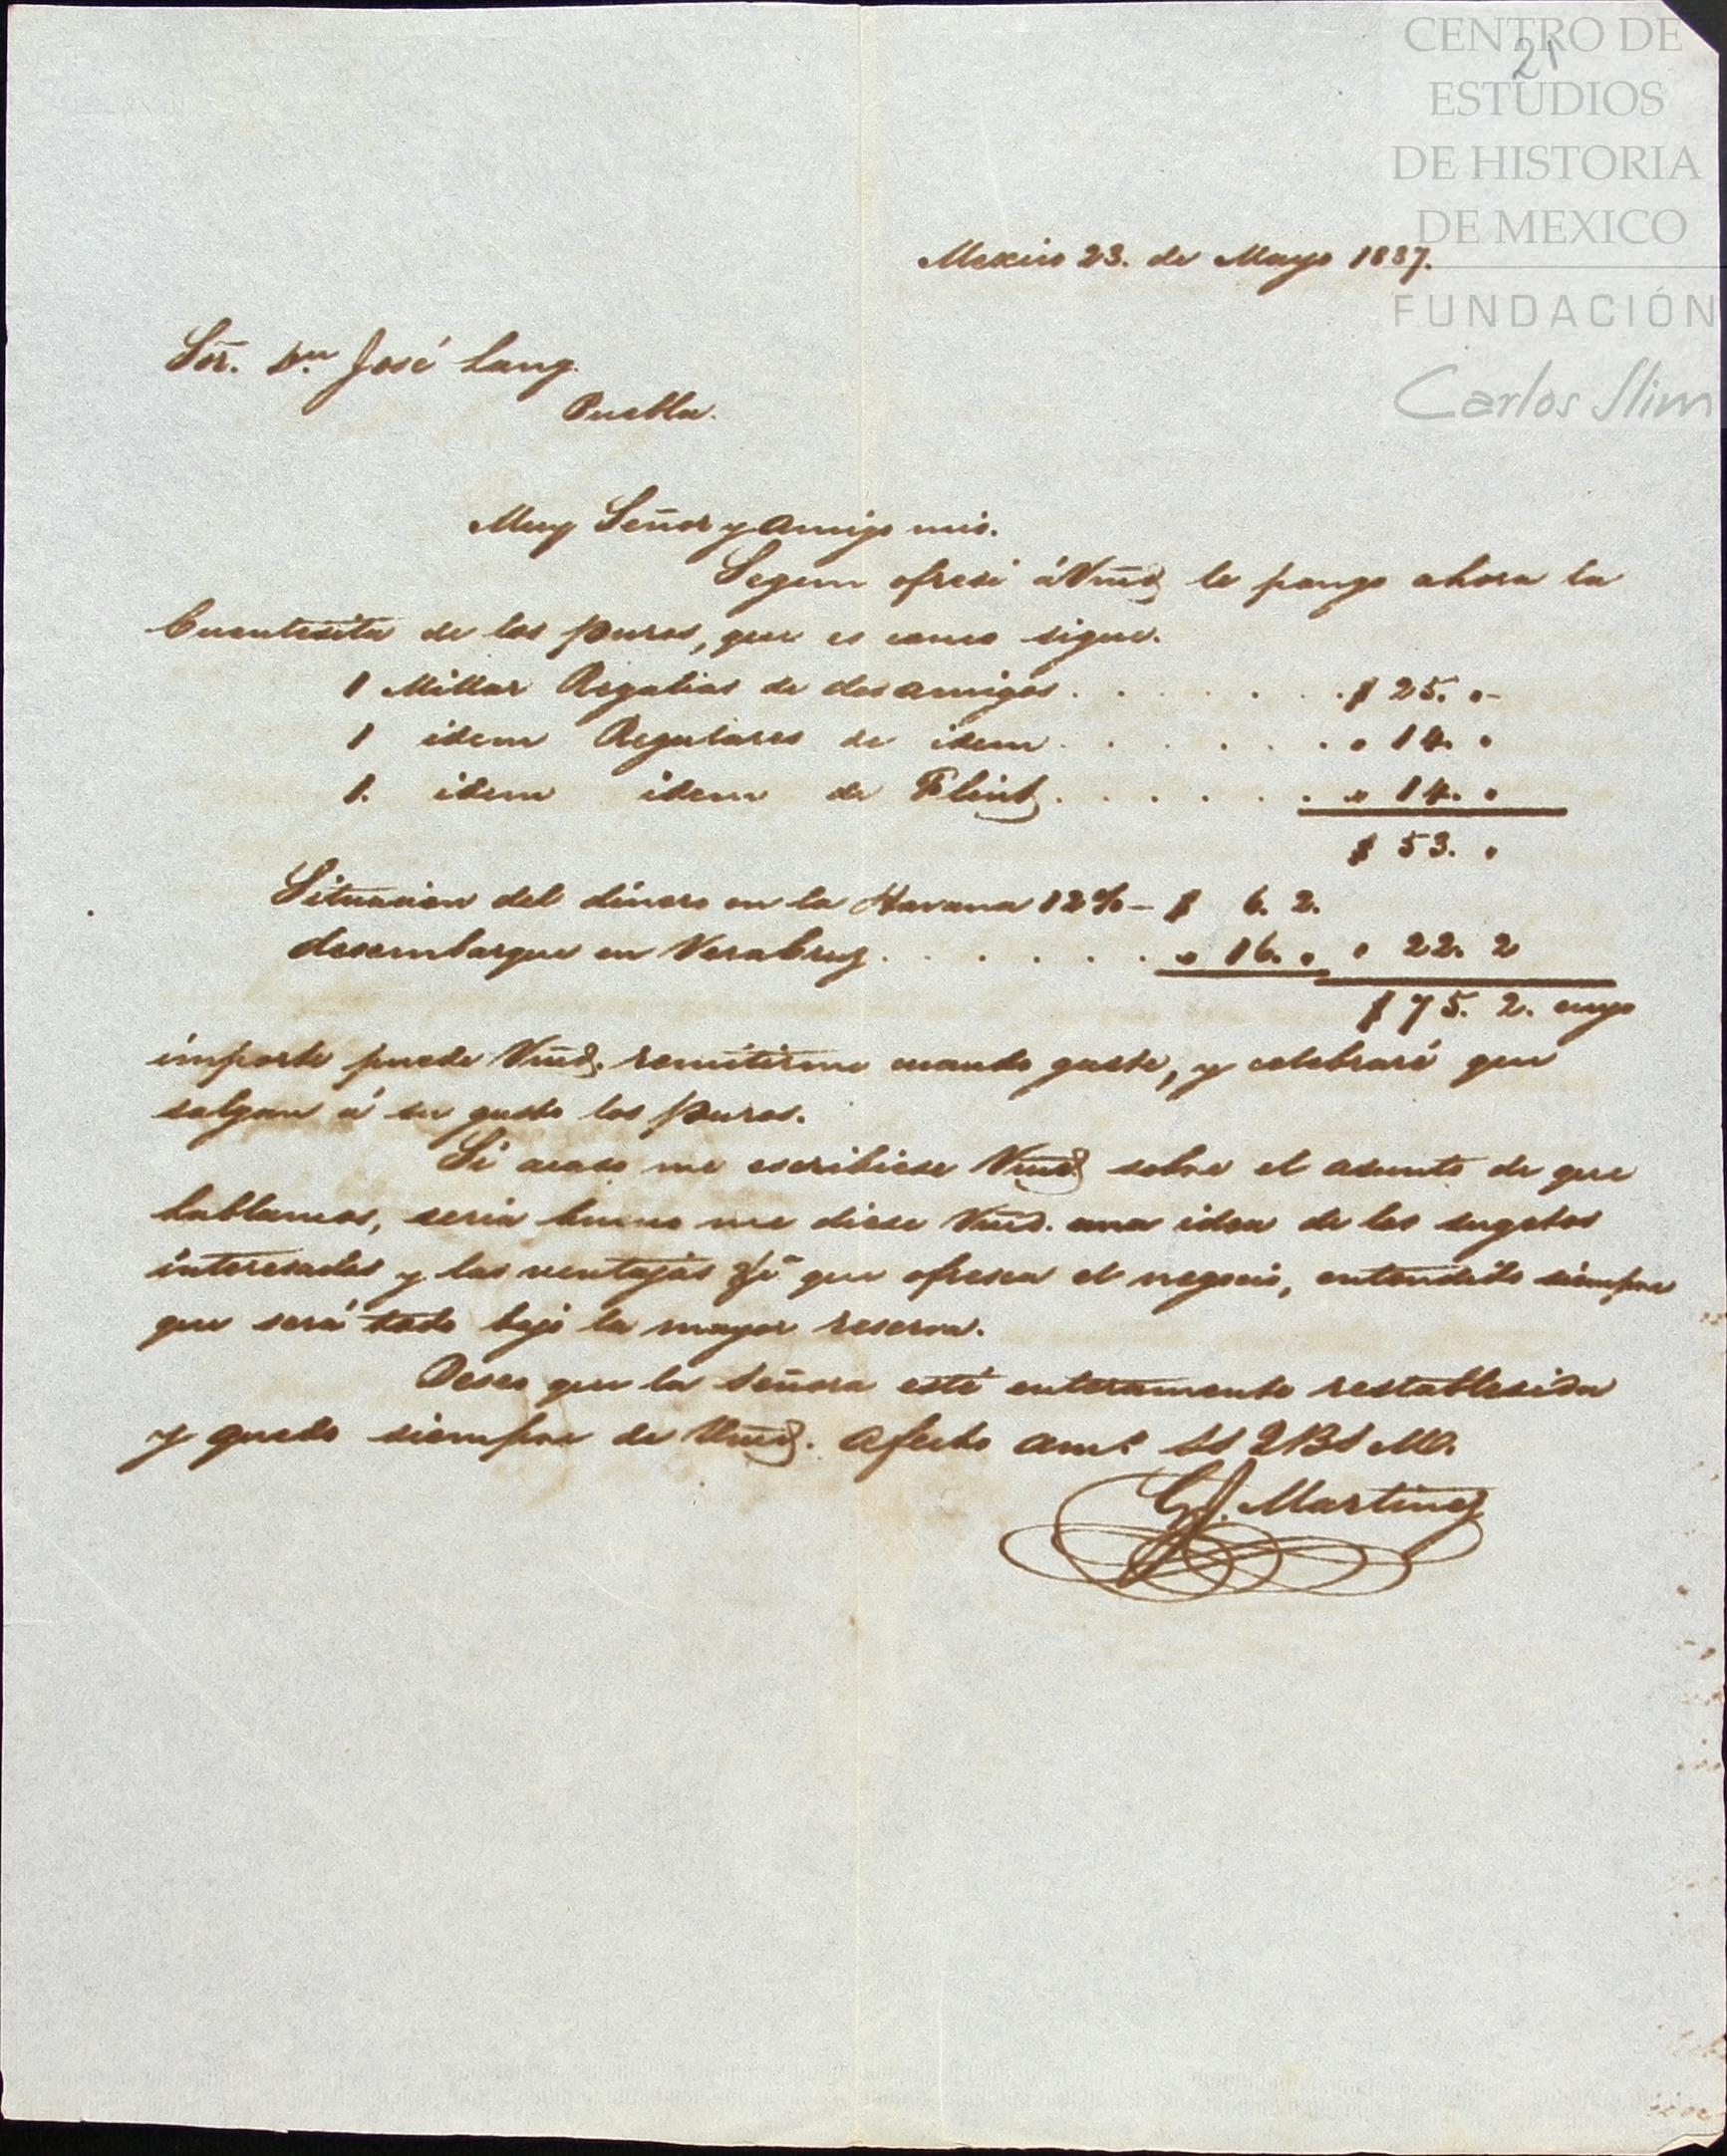 CENTRO DE
21
ESTUDIOS
DE HISTORIA
DE MEXICO
FUNDACIÓN
Carlos Slim
Mexico 23. de Mayo 1837.
Sõr. Dn. José Lang.
Puebla.
Muy Señor y Amigo mio.
Segun ofresi á Vmd le pongo ahora la
Cuentesita de los puros, que es como sigue.
1 Millar Regalias de dos amigos . . . . . . . $ 25. "-
1 idem Regulares de idem . . . . . . . " 14. "
1. idem idem de Flint . . . . . . . " 14. "
$ 53. "
Situacion del dinero en la Havana 12% - $ 6. 2.
desembarque en VeraCruz . . . . . . . " 16. " " 22. 2
$ 75. 2. cuyo
importe puede Vmd. remitirme cuando guste, y celebraré que
salgan á su gusto los puros.
Si acaso me escribiese Vmd sobre el asunto de que
hablamos, seria bueno me diese Vmd. una idea de los sugetos
interesados y las ventajas que ofresca el negocio, entendido siempre
que será todo bajo la mayor reserva.
Deseo que la Señora esté enteramente restablesida
y quedo siempre de Vmd. afecto amo. SS QBSMO.
G J. Martinez